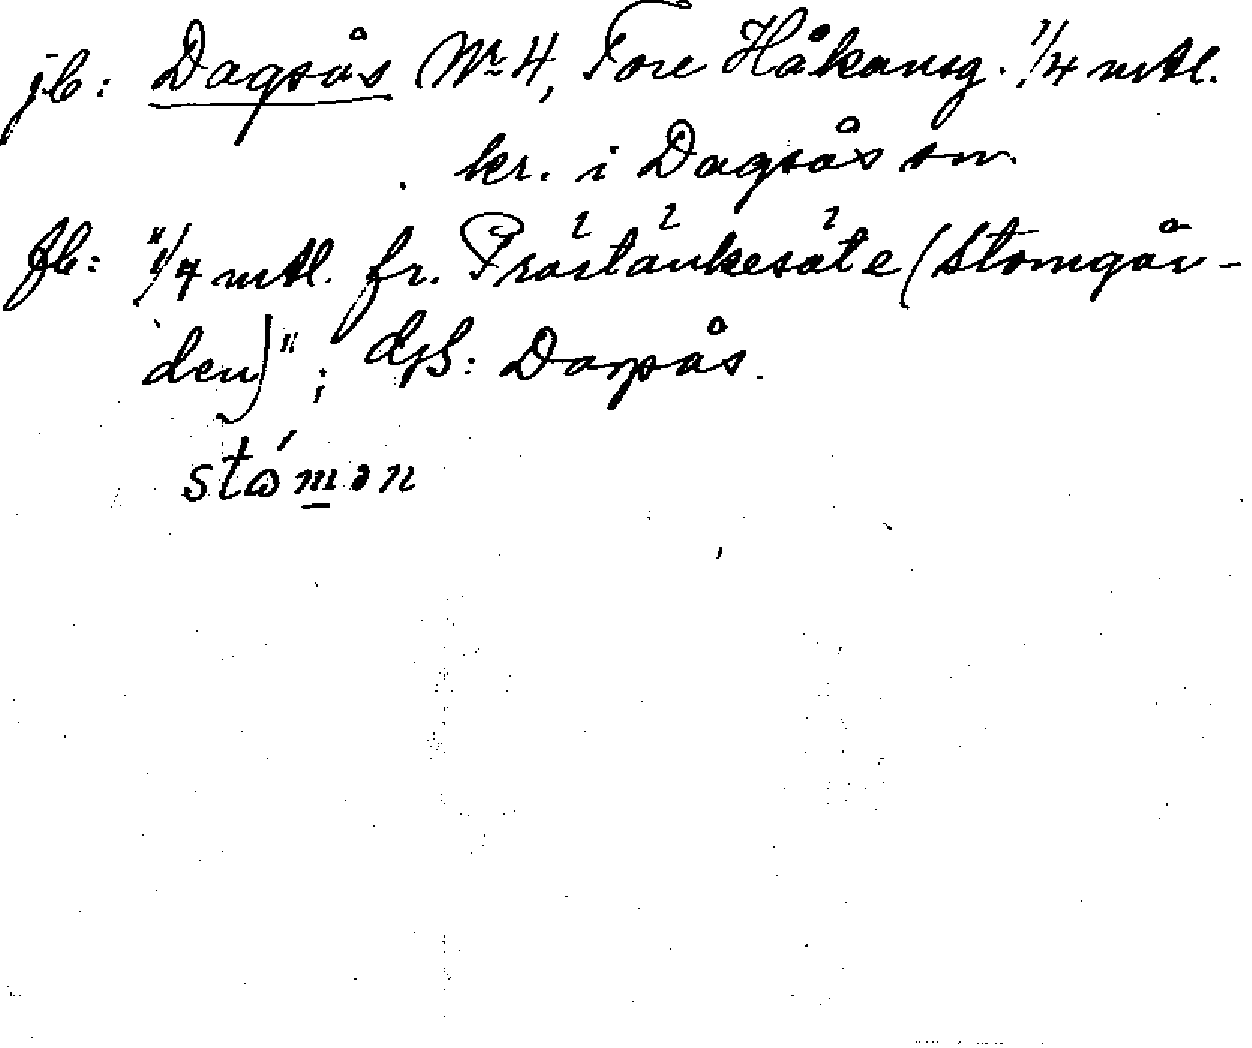 jb: Dagsås (Nr 4, Tore Håkansg. 1/4 mtl.
kr. i Dagsås sn.
fb: "1/4 mtl. fr. Prästänkesäte (Stomgår-
den)"; dph: Dagsås.
stómən